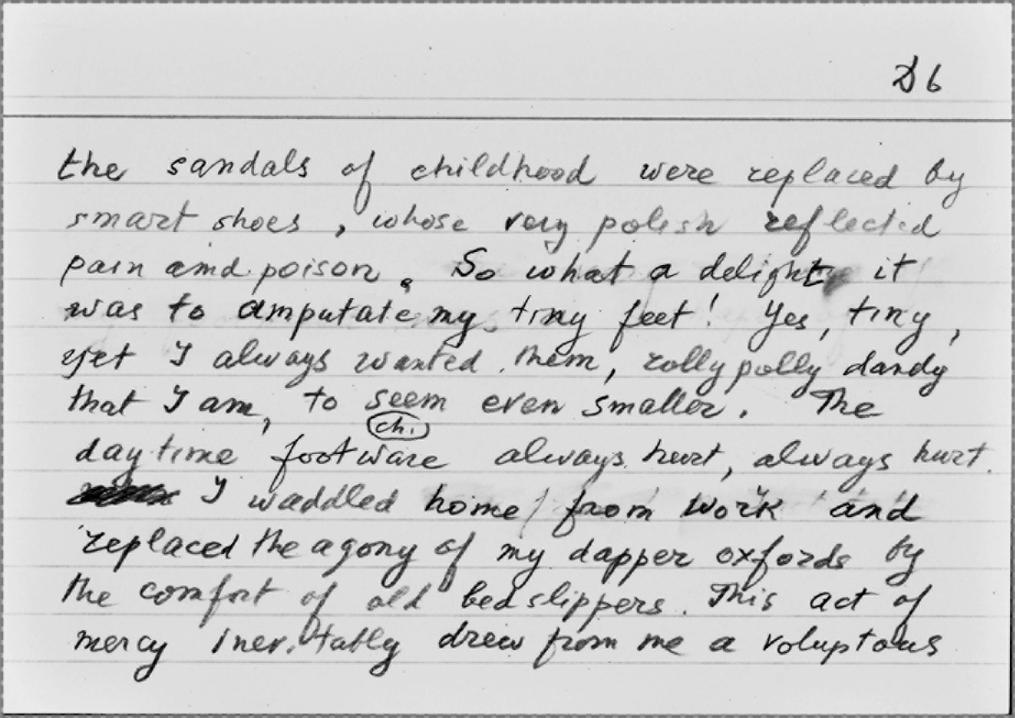 D 6
the sandals of childhood were replaced by
smart shoes, whose very polish reflected
pain and poison. So what a delight it
was to amputate my tiny feet! Yes, tiny,
yet I always wanted them, rolly polly dandy
that I am, to seem even smaller. The
ch.
daytime footware always hurt, always hurt.
I waddled home from work and
replaced the agony of my dapper oxfords by
the comfort of old bed slippers. This act of
mercy inevitably drew from me a voluptous